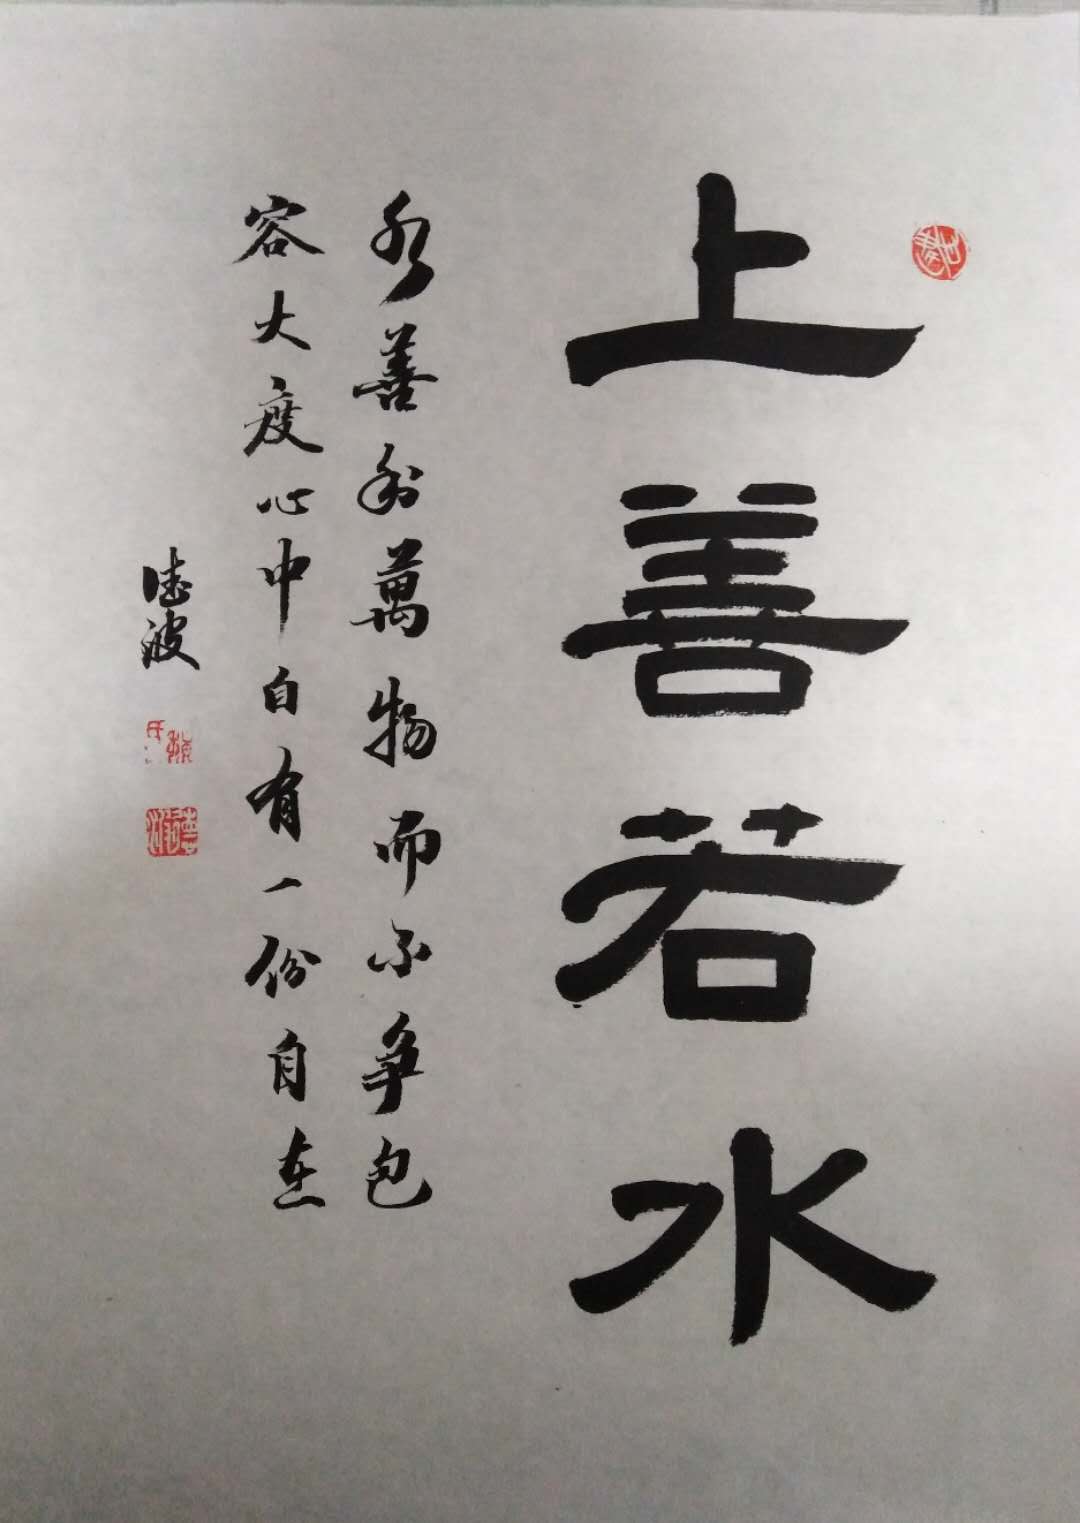 上善若水
水善利萬物而不爭包
容大度心中自有一份自在
德波